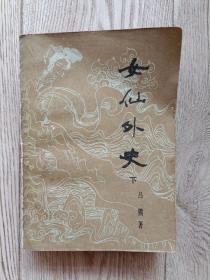 女仙外史
下
吕熊著